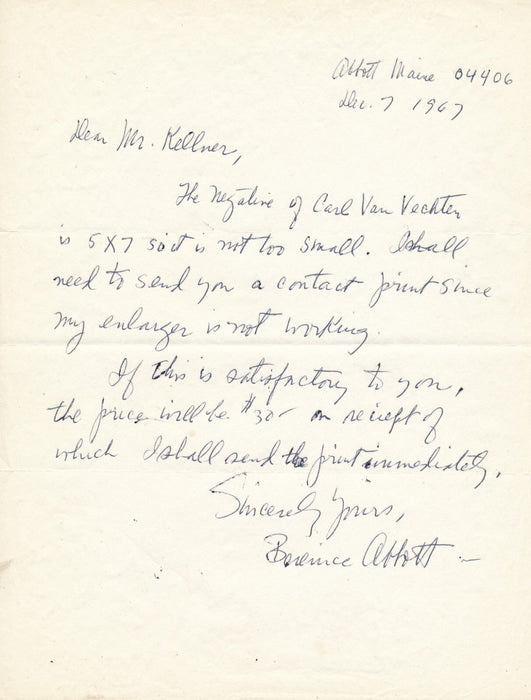 Abbott Maine 04406
Dec. 7 1967
Dear Mr. Kellner,
The negative of Carl Van Vechten
is 5X7 so it is not too small. I shall
need to send you a contact print since
my enlarger is not working.
If this is satisfactory to you,
the price will be $30- on reciept of
which I shall send the print immediately.
Sincerely Yours,
Berenice Abbott -